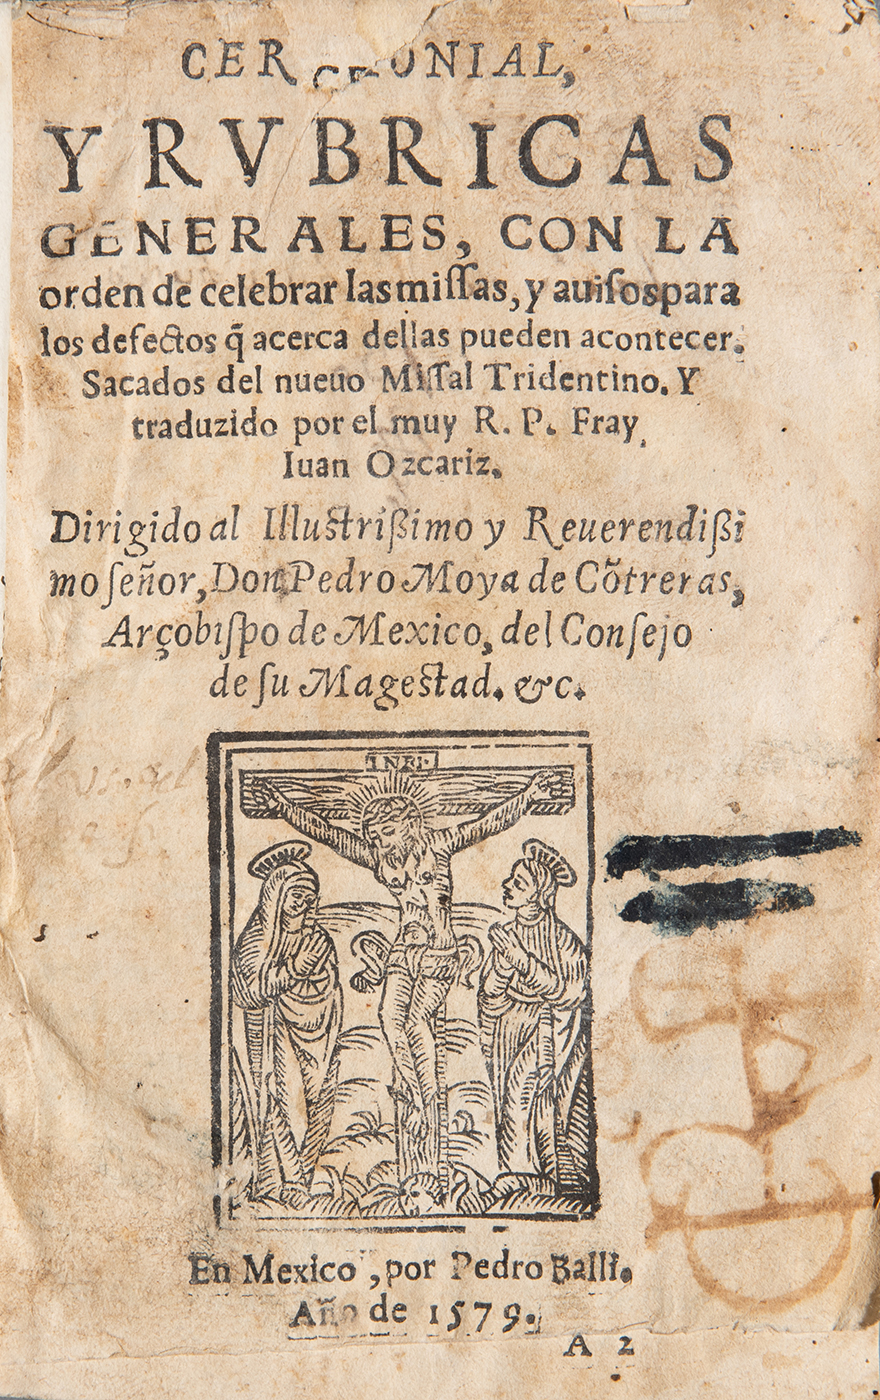 CEREMONIAL,
Y RVBRICAS
GENERALES, CON LA
orden de celebrar las miſſas, y auiſos para
los defectos q̃ acerca dellas pueden acontecer.
Sacados del nueuo Miſſal Tridentino. Y
traduzido por el muy R. P. Fray
Iuan Ozcariz.
Dirigido al Illuſtriſsimo y Reuerendiſsi
mo ſeñor, Don Pedro Moya de Cõtreras,
Arçobiſpo de Mexico, del Conſejo
de ſu Mageſtad. &c.
INRI.
En Mexico, por Pedro Balli.
Año de 1579.
A 2